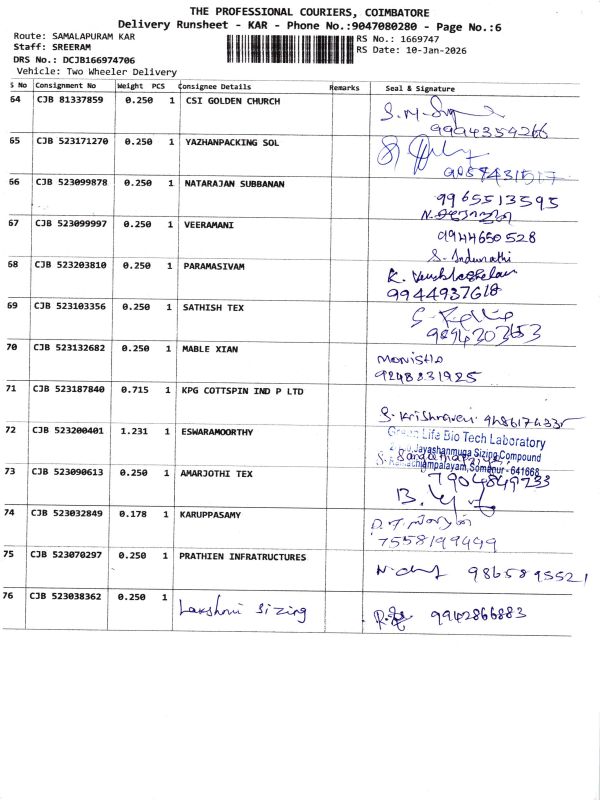 THE PROFESSIONAL COURIERS, COIMBATORE
Delivery Runsheet - KAR - Phone No.:9047080280 - Page No.:6
Route: SAMALAPURAM KAR
RS No.: 1669747
Staff: SREERAM
RS Date: 10-Jan-2026
DRS No.: DCJB166974706
Vehicle: Two Wheeler Delivery
S No Consignment No Weight PCS Consignee Details Remarks Seal & Signature
64 CJB 81337859 0.250 1 CSI GOLDEN CHURCH
9994354266
65 CJB 523171270 0.250 1 YAZHANPACKING SOL
66 CJB 523099878 0.250 1 NATARAJAN SUBBANAN
9965513595
67 CJB 523099997 0.250 1 VEERAMANI
9944650528
S. Indumathi
68 CJB 523203810 0.250 1 PARAMASIVAM
K. Venkatachalam
9944937618
69 CJB 523103356 0.250 1 SATHISH TEX
70 CJB 523132682 0.250 1 MABLE XIAN
Monisha
9248831925
71 CJB 523187840 0.715 1 KPG COTTSPIN IND P LTD
S. Krishnaveni
72 CJB 523200401 1.231 1 ESWARAMOORTHY
Green Life Bio Tech Laboratory
Jayashanmuga Sizing Compound
Ramachiampalayam, Somanur - 641668
73 CJB 523090613 0.250 1 AMARJOTHI TEX
7904849733
74 CJB 523032849 0.178 1 KARUPPASAMY
7558199499
75 CJB 523070297 0.250 1 PRATHIEN INFRATRUCTURES
9865895521
76 CJB 523038362 0.250 1 Lakshmi Sizing
9942866883